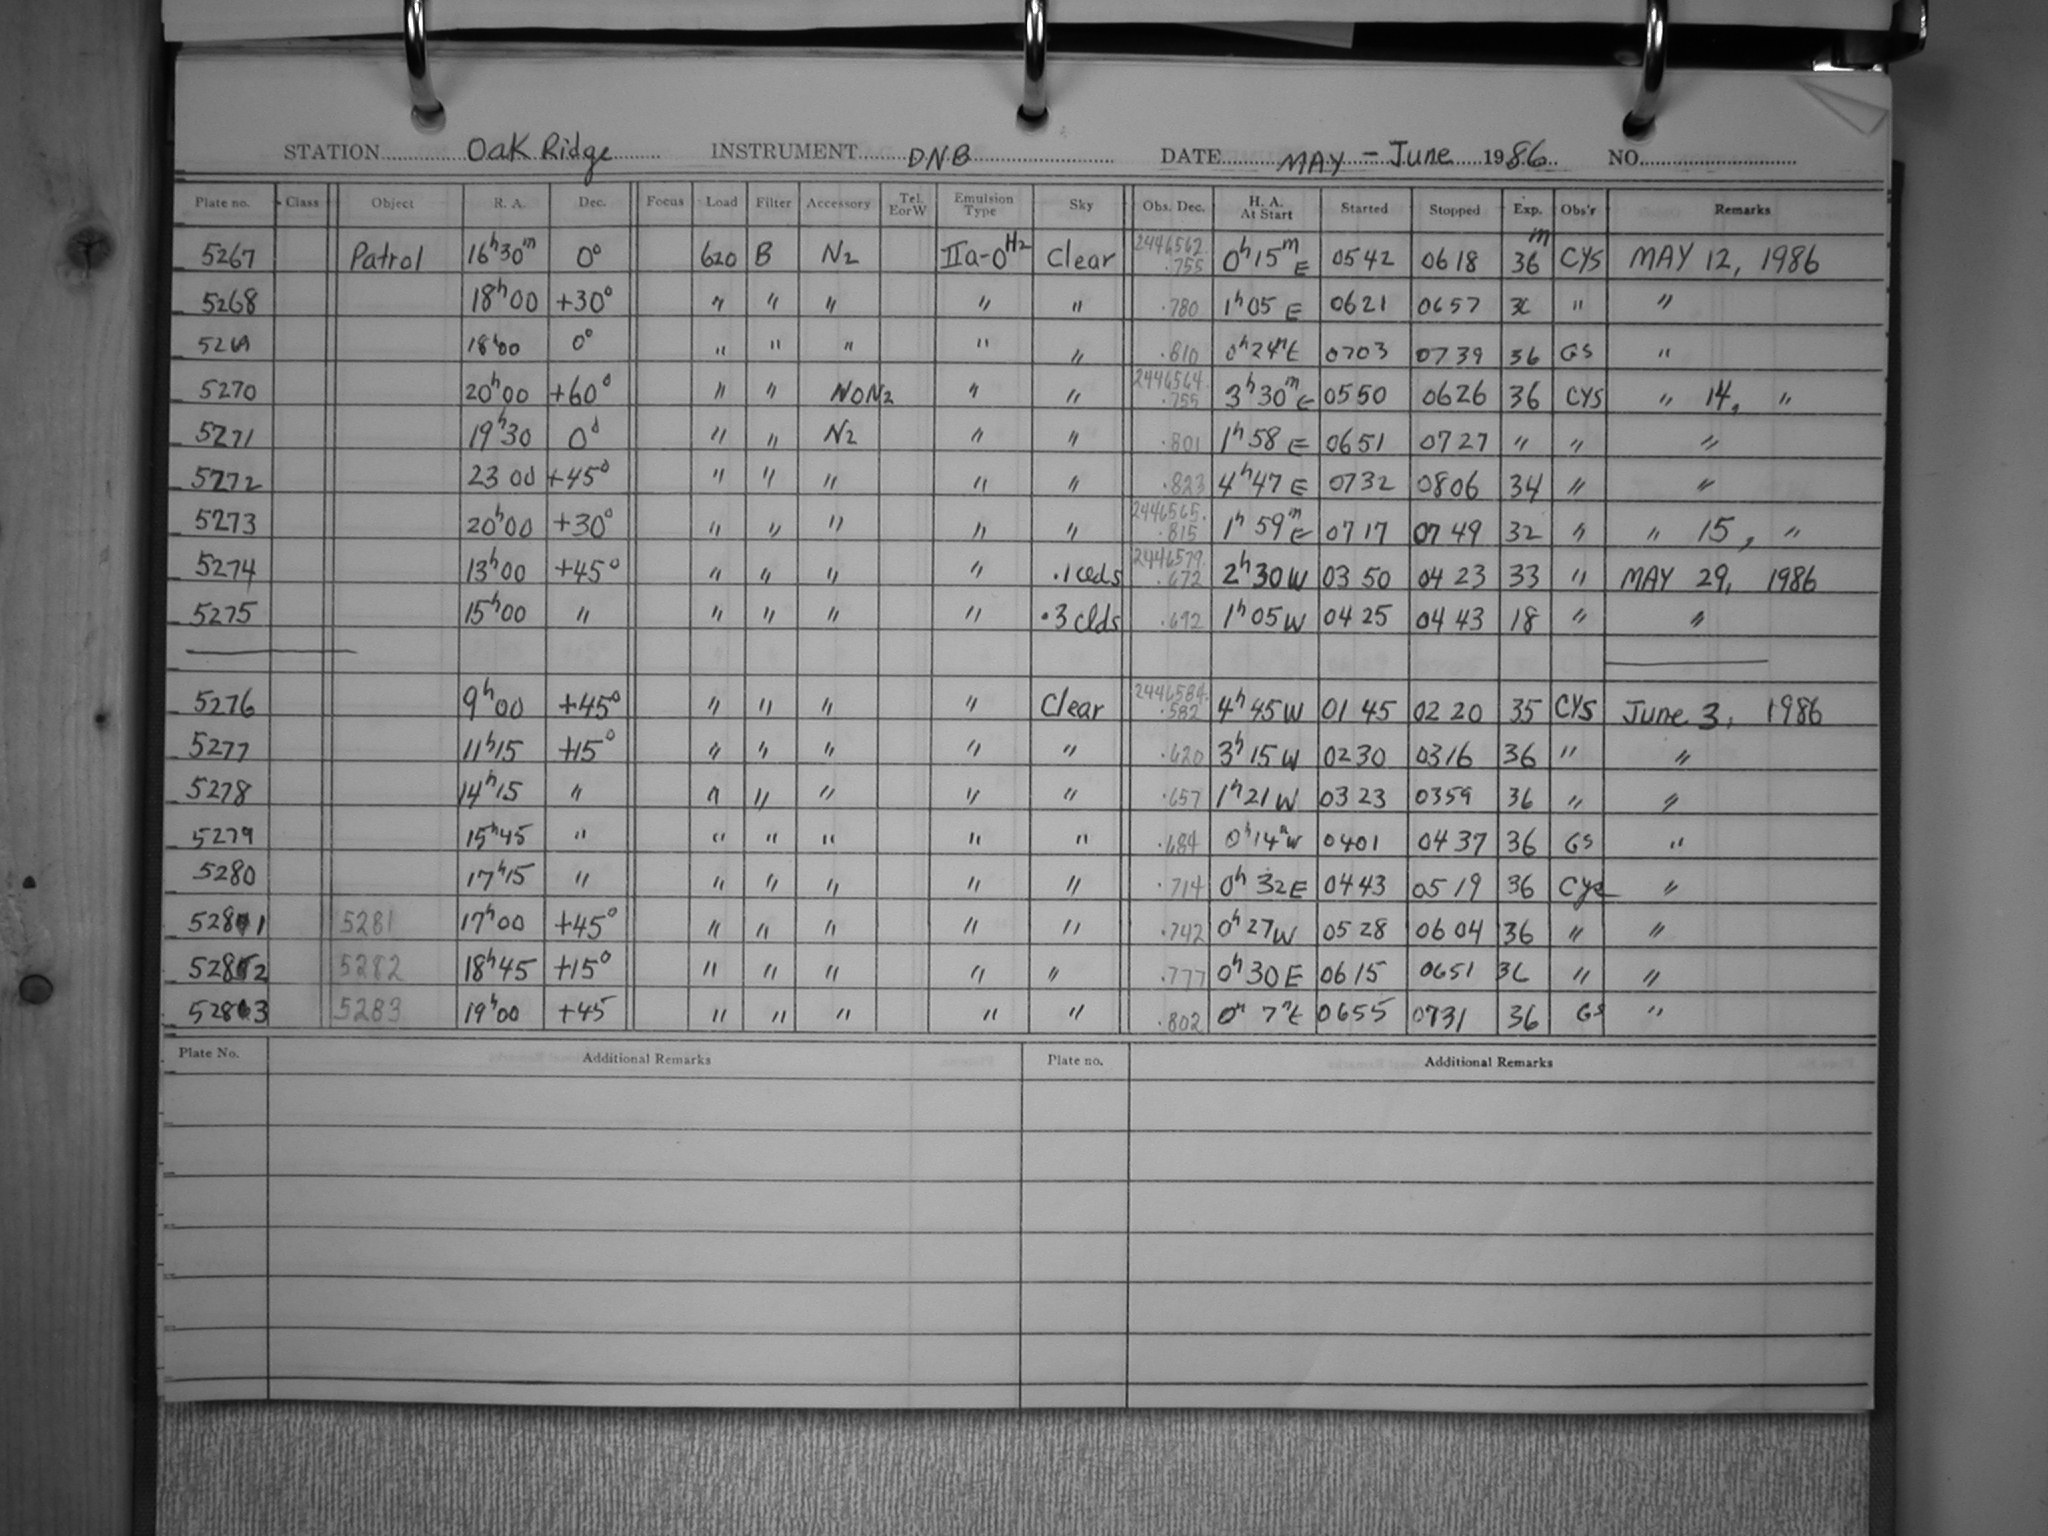 STATION Oak Ridge INSTRUMENT DNB DATE MAY - June 1986 NO.
Plate no. Class Object R. A. Dec. Focus Load Filter Accessory Tel. E or W Emulsion Type Sky Obs. Dec. H. A. At Start Started Stopped Exp. Obs'r Remarks
5267 Patrol 16h30m 0° 620 B N2 IIa-O H2 Clear 2446562.755 0h15m E 0542 0618 36m CYS MAY 12, 1986
5268 18h00 +30° " " " " " .780 1h05 E 0621 0657 36 " "
5269 18h00 0° " " " " " .810 0h24m E 0703 0739 36 GS "
5270 20h00 +60° " " NON2 " " 2446564.755 3h30m E 0550 0626 36 CYS " 14, "
5271 19h30 0° " " N2 " " .801 1h58 E 0651 0727 " " "
5272 23 00 +45° " " " " " .823 4h47 E 0732 0806 34 " "
5273 20h00 +30° " " " " " 2446565.815 1h59m E 0717 0749 32 " " 15, "
5274 13h00 +45° " " " " .1 clds 2446579.672 2h30 W 0350 0423 33 " MAY 29, 1986
5275 15h00 " " " " " .3 clds .692 1h05 W 0425 0443 18 " "
5276 9h00 +45° " " " " Clear 2446584.582 4h45 W 0145 0220 35 CYS June 3, 1986
5277 11h15 +15° " " " " " .620 3h15 W 0230 0316 36 " "
5278 14h15 " " " " " " .657 1h21 W 0323 0359 36 " "
5279 15h45 " " " " " " .684 0h14m W 0401 0437 36 GS "
5280 17h15 " " " " " " .714 0h 32 E 0443 0519 36 CYS "
5281 5281 17h00 +45° " " " " " .742 0h27 W 0528 0604 36 " "
5282 5282 18h45 +15° " " " " " .777 0h30 E 0615 0651 36 " "
5283 5283 19h00 +45 " " " " " .802 0h 7m E 0655 0731 36 GS "
Plate No. Additional Remarks Plate no. Additional Remarks